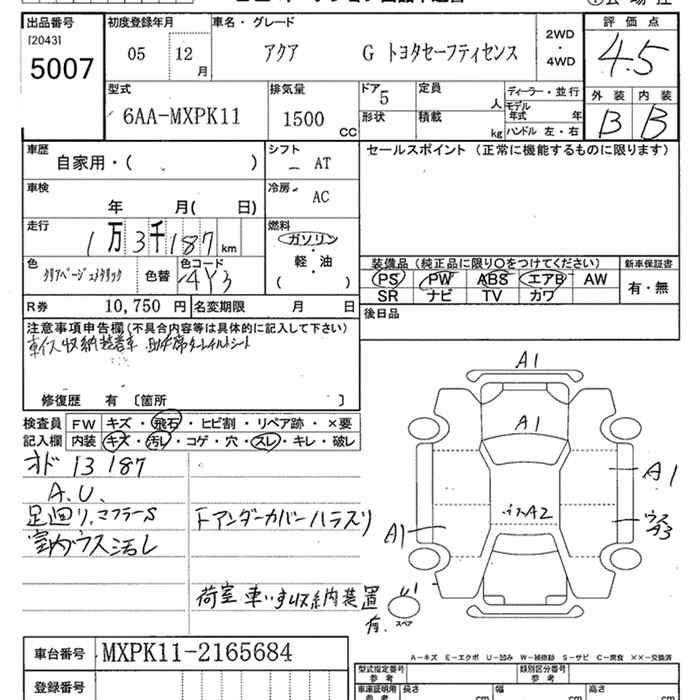 出品番号
[2043]
5007
初度登録年月
05 12 月
車名・グレード
アクア G トヨタセーフティセンス
2WD
・
4WD
評価点
4.5
型式
6AA-MXPK11
排気量
1500 CC
ドア 5
形状
定員 人
積載 kg
ディーラー・並行
モデル年式 年
ハンドル 左・右
外装 内装
B B
車歴
自家用・( )
シフト
AT
セールスポイント (正常に機能するものに限ります)
車検
年 月( 日)
冷房
AC
走行
1万3千187 km
燃料
ガソリン
・
軽・油
( )
色
色替
色コード
4Y3
装備品 (純正品に限り○をつけてください)
PS PW ABS エアB AW
SR ナビ TV カワ
新車保証書
有・無
R券 10,750 円
名変期限 月 日
後日品
注意事項申告欄(不具合内容等は具体的に記入して下さい)
修復歴 有 〔箇所 〕
検査員
記入欄
FW キズ・飛石・ヒビ割・リペア跡・×要
内装 キズ・汚レ・コゲ・穴・スレ・キレ・破レ
オド 13187
A.U.
足廻リ、マフラーS
下アンダーカバーハラズリ
荷室 車いす収納装置
有.
A1
A1
A1
A1
A2
A3
スペア
A－キズ E－エクボ U－凹み W－補修跡 S－サビ C－腐食 ××－交換済
車台番号 MXPK11-2165684
登録番号
型式指定番号
参考
類別区分番号
参考
車庫証明用
参考
長さ cm
幅 cm
高さ cm